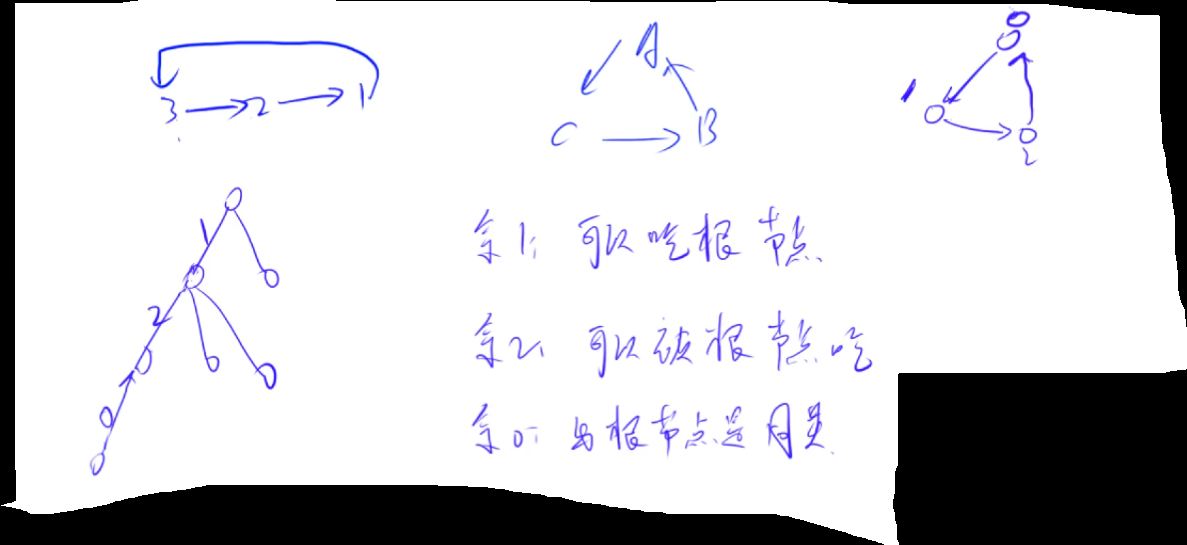 3 → 2 → 1
A
C → B
0
1
2
1
2
0
余1: 可以吃根节点
余2: 可以被根节点吃
余0: 与根节点是同类